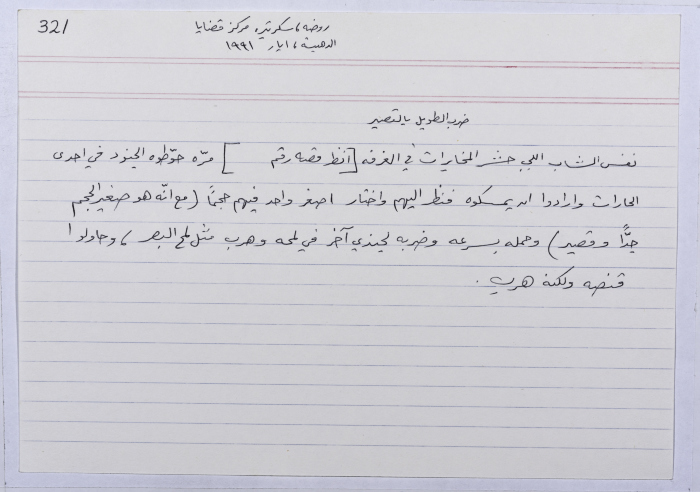 321
روضه، سكرتيره مركز قضايا
الدهيشة، ايار ١٩٩١
ضرب الطويل بالقصير
نفس الشاب اللي حشر المخابرات في الغرفه [انظر قصه رقم ] مرّه حوّطوه الجنود في احدى
الحارات وارادوا ان يمسكوه فنظر اليهم واختار اصغر واحد فيهم حجمًا (مع انّه هو صغير الحجم
جدًّا وقصير) وحمله بسرعه وضربه لجندي آخر في لمحه وهرب مثل لمح البصر، وحاولوا
قنصه ولكنه هرب.